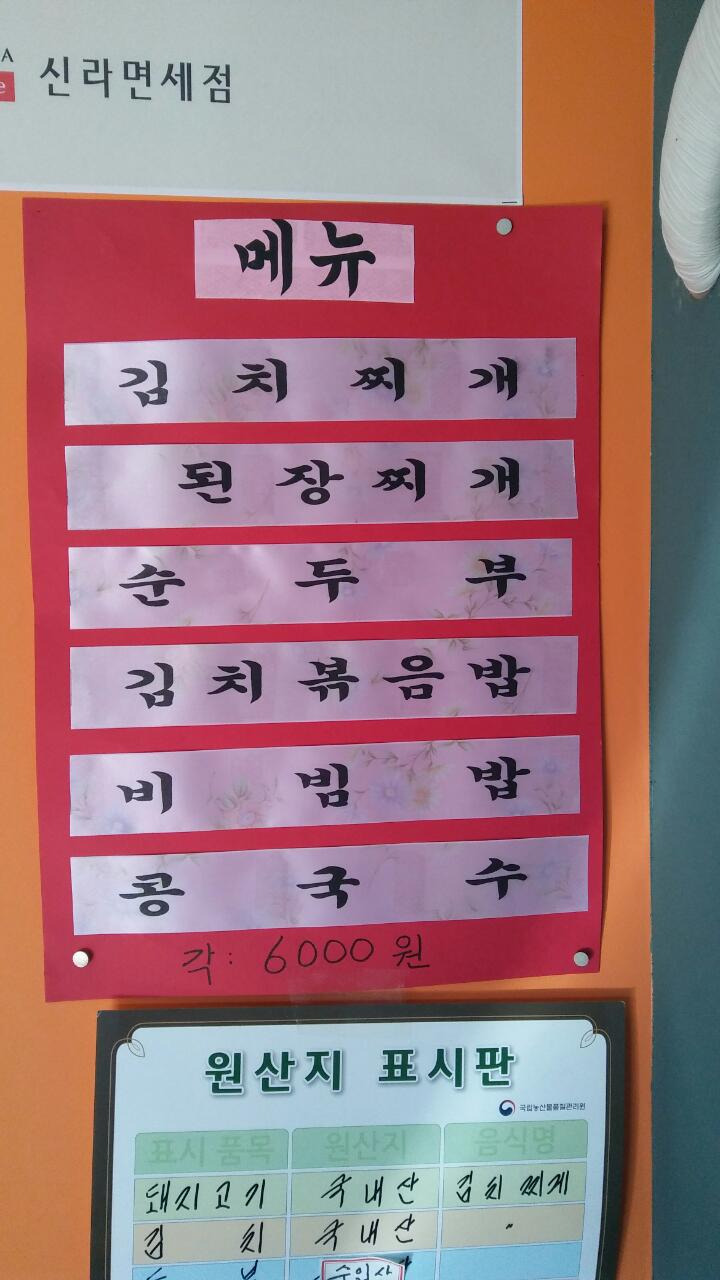 신라면세점
메뉴
김치찌개
된장찌개
순두부
김치볶음밥
비빔밥
콩국수
각: 6000원
원산지 표시판
국립농산물품질관리원
표시 품목 원산지 음식명
돼지고기 국내산 김치찌게
김치 국내산 〃